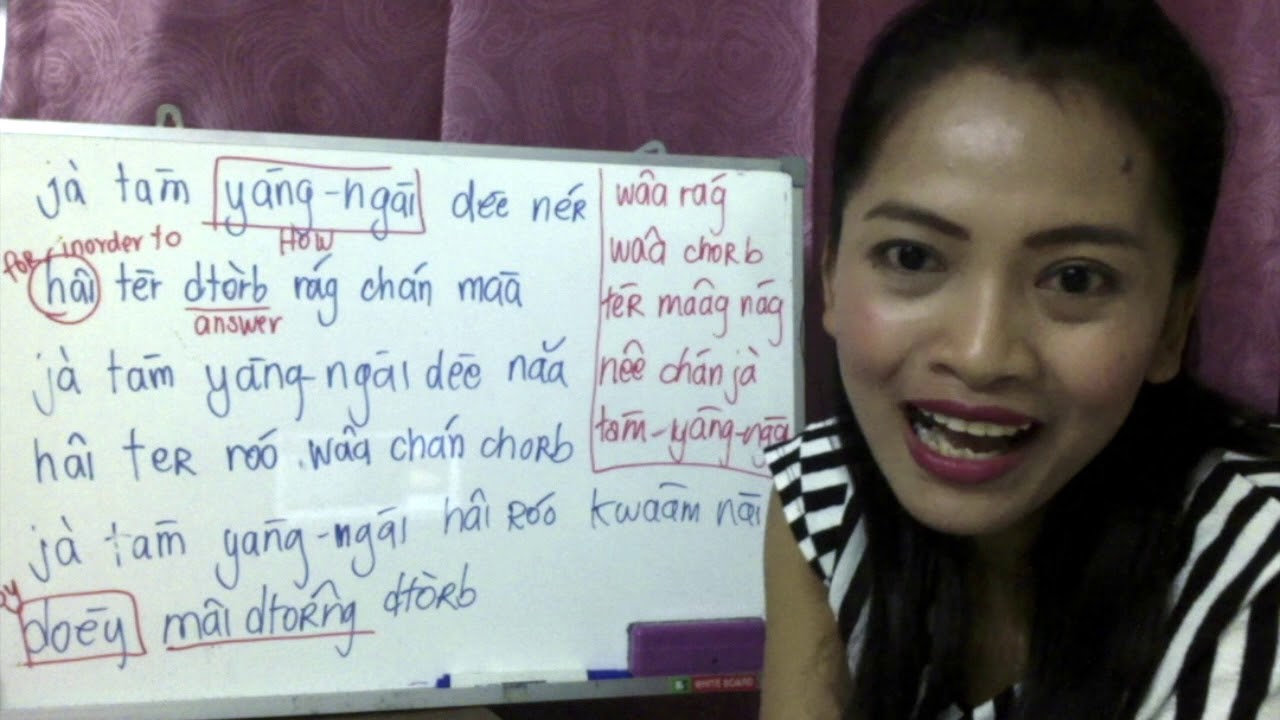 jà tam̄ yāng-ngāi dēē nér
FOR, inorder to
HOW
hâi tēr dtòrb rág chán maā
answer
jà tām yāng-ngāi dēē nǎa
hâi teR róó wâa chán choRb
jà tam̄ yāng-ngāi hâi Róó kwaām nāi
doēy mâi dtoRn̂g dtòrb
wâa rág
waâ choRb
tēR maâg nág
nêê chán jà
tam̄-yāng-ngāi
WHITE BOARD